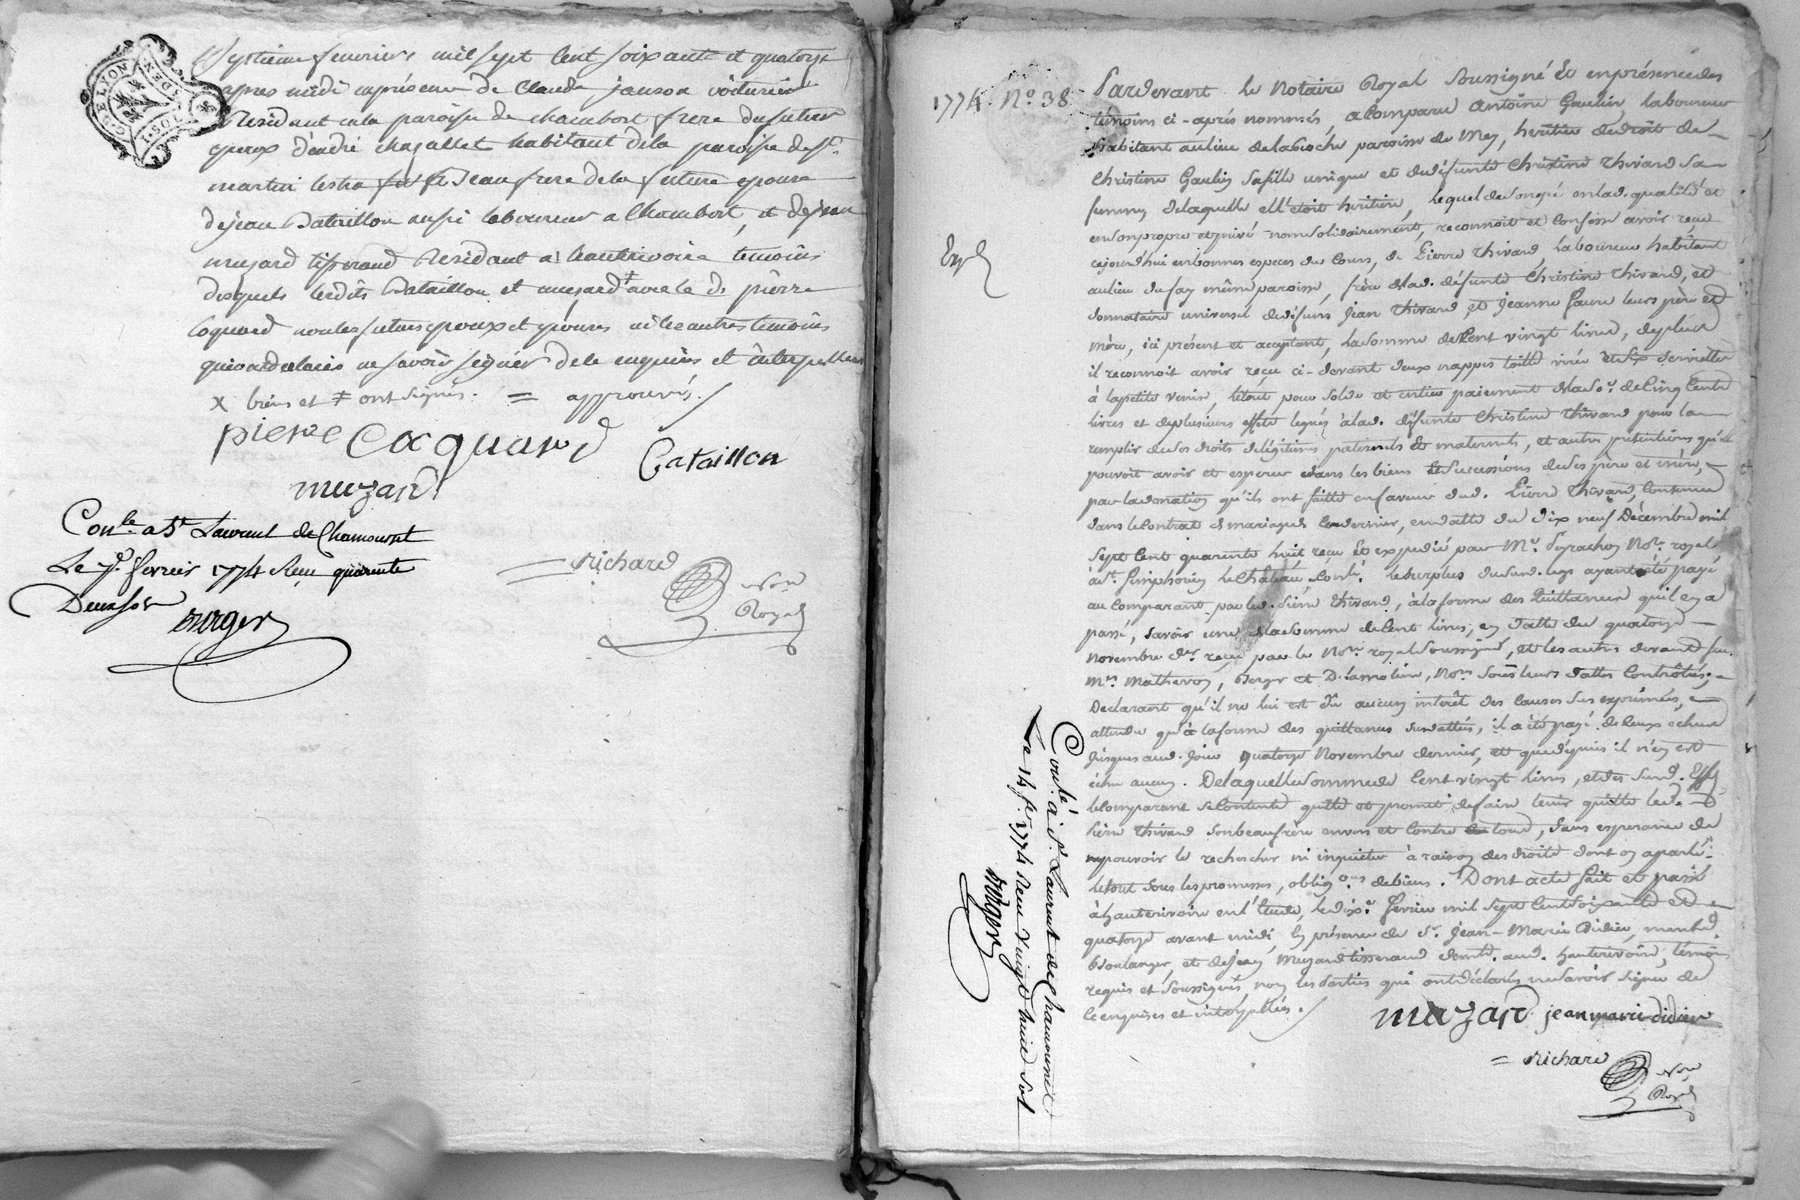 G. DE LYON
septieme fevrier mil sept cent soixante et quatorze
apres midi en presence de Claude janson voiturier
Residant en la paroisse de chambost frere du futur
epoux d'andré chazallet habitant de la paroisse de St.
martin lestra Jean frere de la future epouse
de jean Bataillon aussi laboureur a Chambost, et de jean
muzard tisserand Residant a hauterivoire temoins
desquels lesdits Bataillon et muzard avec le d. pierre
Coquard non les futurs epoux et epouse ni les autres temoins
qui ont declarés ne savoir signer de ce enquis et interpellés
x biens et ‡ ont signés. = approuvés. /
pierre Coquard
Bataillon
muzard
Conlé a St Laurent de Chamousset
Le 7e. fevrier 1774 Reçu quarante
Deux sols
Berger
= richard
Nore
Royal
1774. No. 38
Expé
Pardevant le Notaire Royal Soussigné Et en presence des
témoins ci-après nommés, a Comparu Antoine Gaulin laboureur
habitant au lieu de la pioche paroisse de Mey, heritier de droit de
Christine Gaulin sa fille unique et de défunte Christine Thivard sa
femme de laquelle elle étoit heritiere, lequel de son gré en lad. qualité et
en son propre et privé nom solidairement, reconnoit et Confesse avoir reçu
cejourd'hui en bonnes especes du Cours, de Pierre Thivard, laboureur habitant
au lieu du fay même paroisse, frère de lad. défunte Christine Thivard, et
donnataire universel de défunts Jean Thivard et Jeanne faure leurs père et
mère, ici présent et acceptant, la somme de Cent vingt livres, de plus
il reconnoit avoir reçu ci-devant deux nappes toille ritte et six serviettes
à la petite venise, le tout pour solde et entier paiement de la so.e de Cinq Cents
livres et de plusieurs effets legués à lad. défunte Christine Thivard pour la
remplir de ses droits de légitimes paternels Et maternels, et autres prétentions qu'elle
pouvoit avoir et esperer dans les biens et successions de ses père et mère,
par la donation qu'ils ont faitte en faveur dud. Pierre Thivard, Contenue
dans le Contrat de mariage de ce dernier, en datte du dix neuf Décembre mil
sept Cent quarante huit reçu et expedié par Me. Peyrachon Nore. royal
à St. Simphorien le Château, Conlé. le surplus du susd. legs ayant été payé
au comparant par led. Pierre Thivard, à la forme des Quittances qu'il en a
passé, savoir une de la somme de Cent livres, en Datte du quatorze
Novembre der. reçue par le Nore. royal soussigné, et les autres devant feu
Mes. Matheron, Berger et Delamotion, Nores. sous leurs dattes Contrôlées,
Declarant qu'il ne lui est dû aucun interêt des causes sus exprimées,
attendu qu'à la forme des quittances susdattées, il a été payé de ceux echus
jusques aud. jour quatorze Novembre dernier, et que depuis il n'en est
échu aucun. De laquelle somme de Cent vingt livres, et des susd. Effets
le Comparant se Contente quitte et promet de faire tenir quitte led.
Pierre Thivard son beaufrère envers et Contre tous, sans esperance de
pouvoir le rechercher ni inquieter à raison des droits dont on a parlé.
le tout sous les promesses, obligons. de biens. Dont acte fait et passé
à hauterivoire en l'Etude, le dixe. fevrier mil sept Cent soixante et
quatorze avant midi, En présence de Sr. Jean-Marie Didier, marchd.
Boulanger, et de Jean Muzard tisserand demts. aud. Hauterivoire, témoins
requis et Soussignés non les Parties qui ont déclarés ne savoir signer de
ce enquises et interpellées. /
muzard jean marie didier
= richard
Nore
Royal
Conlé à St. Laurent de Chamousset
Le 14 fer. 1774 Reçu Vingt huit sols
Berger